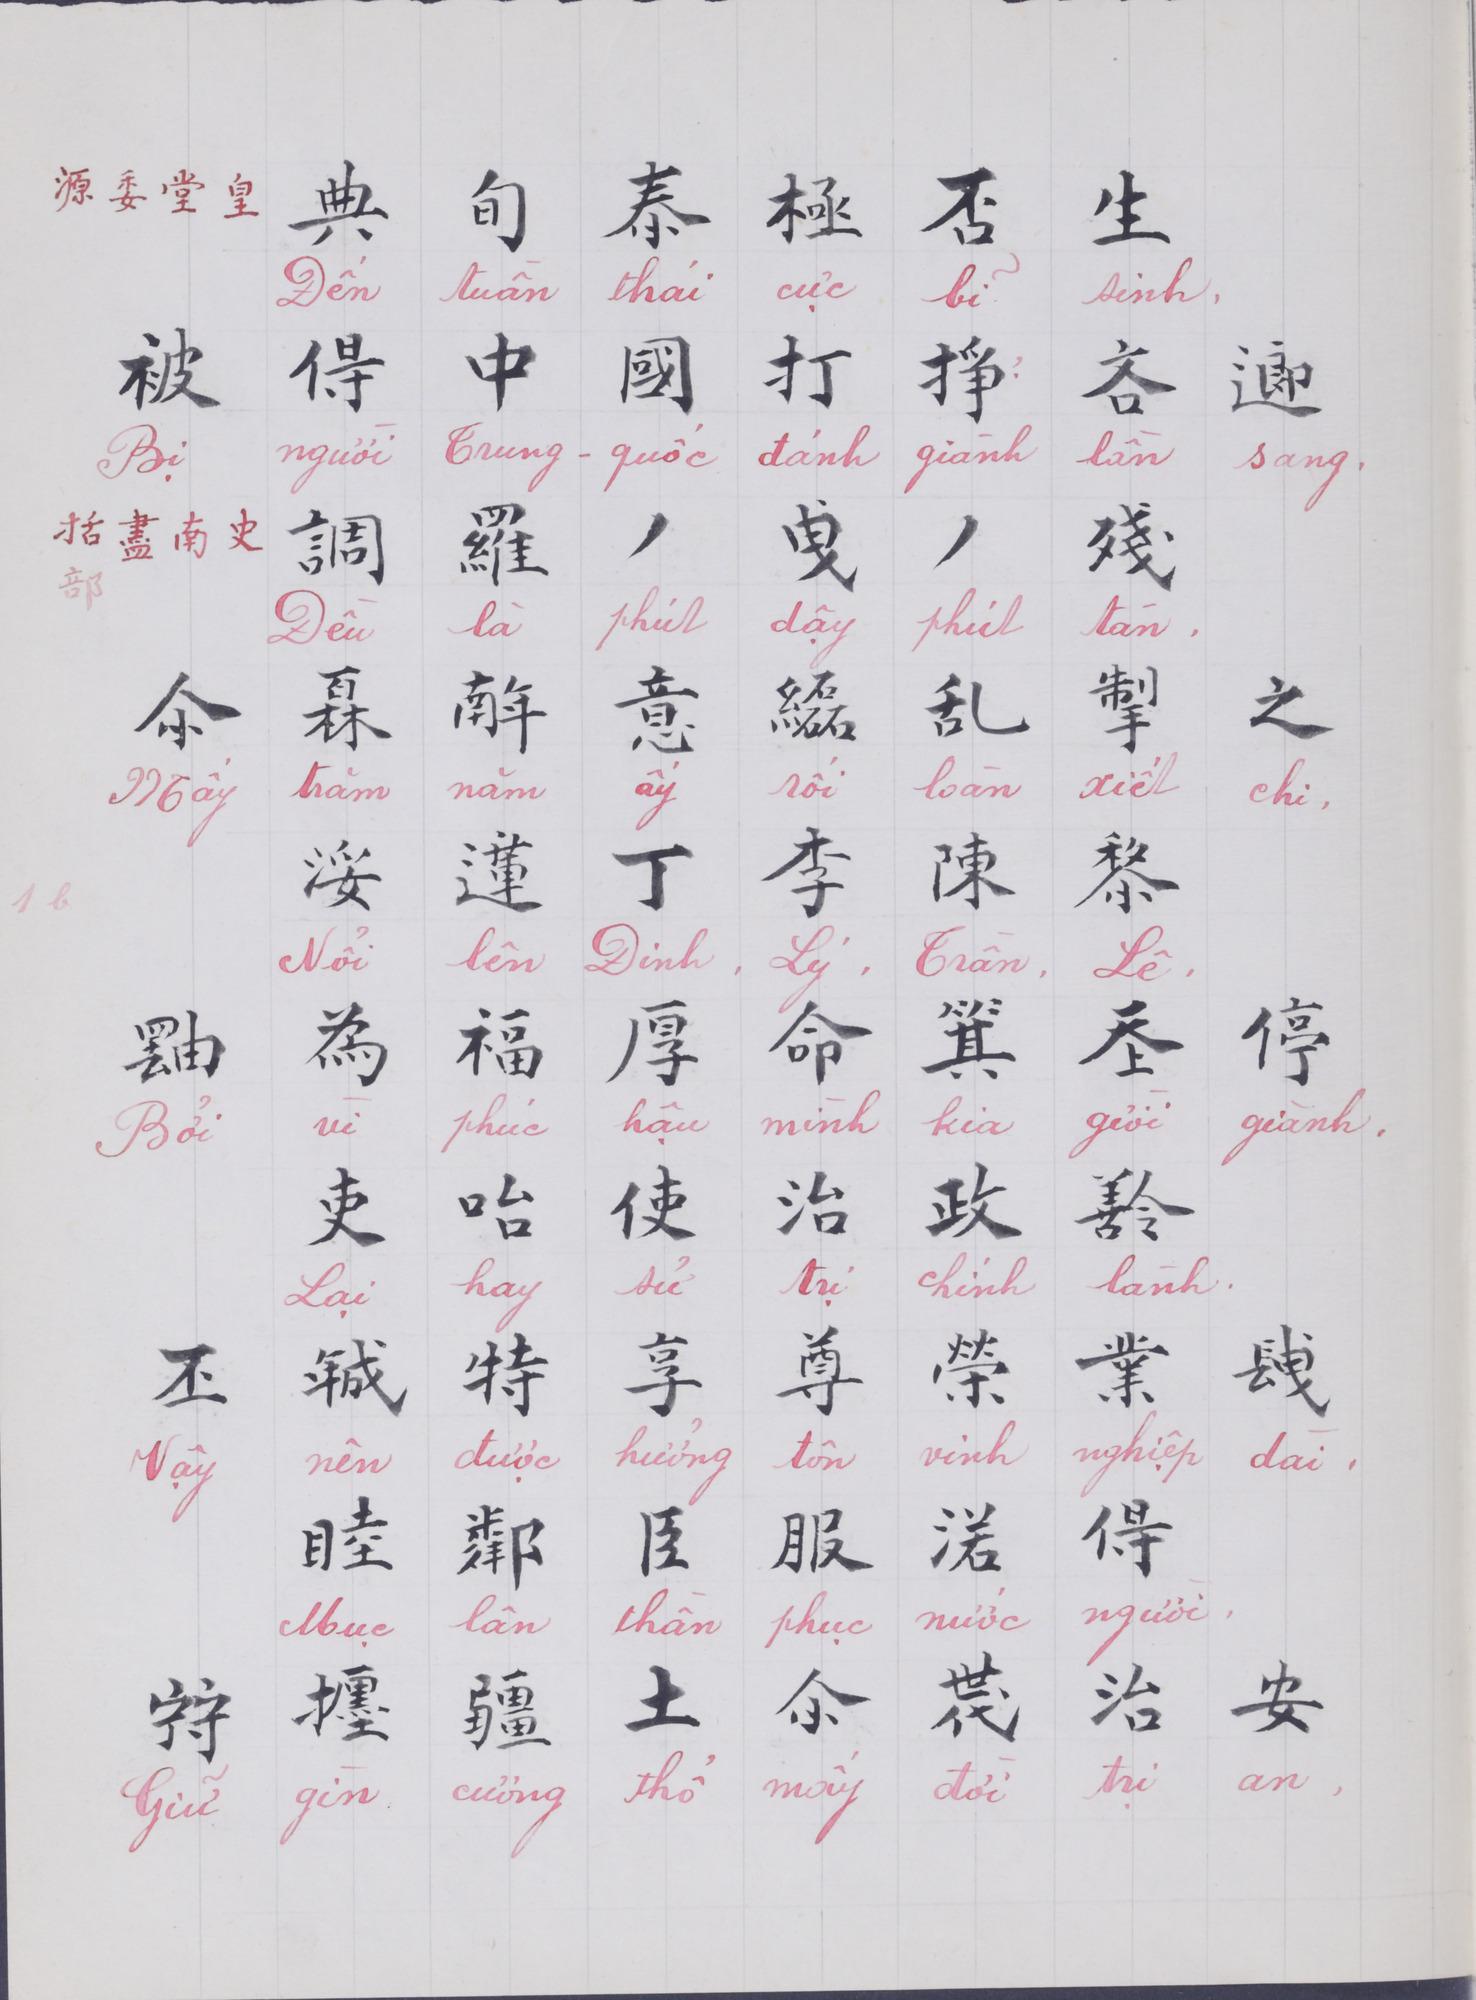 源委堂皇
典旬泰極否生
Đến tuần thái cực bĩ sinh,
被得中國打掙吝𨖅
Bị người Trung-quốc đánh giành lần sang.
括盡南史
部
調羅丿曳丿殘
Đều là phút dậy phút tàn,
余𤾓𢆥意䋘乱掣之
Mấy trăm năm ấy rối loàn xiết chi,
1b
浽蓮丁李陳黎
Nổi lên Đinh, Lý, Trần, Lê,
𤳸為福厚命箕𡗶停
Bởi vì phúc hậu mình kia giời giành,
吏咍使治政
Lại hay sử trị chính lành.
丕𢧚特享尊榮業𨱽
Vậy nên được hưởng tôn vinh nghiệp dài,
睦鄰臣服渃得
Mục lân thần phục nước người,
𡨺㩫疆土余𠁀治安
Giữ gìn cường thổ mấy đời trị an,